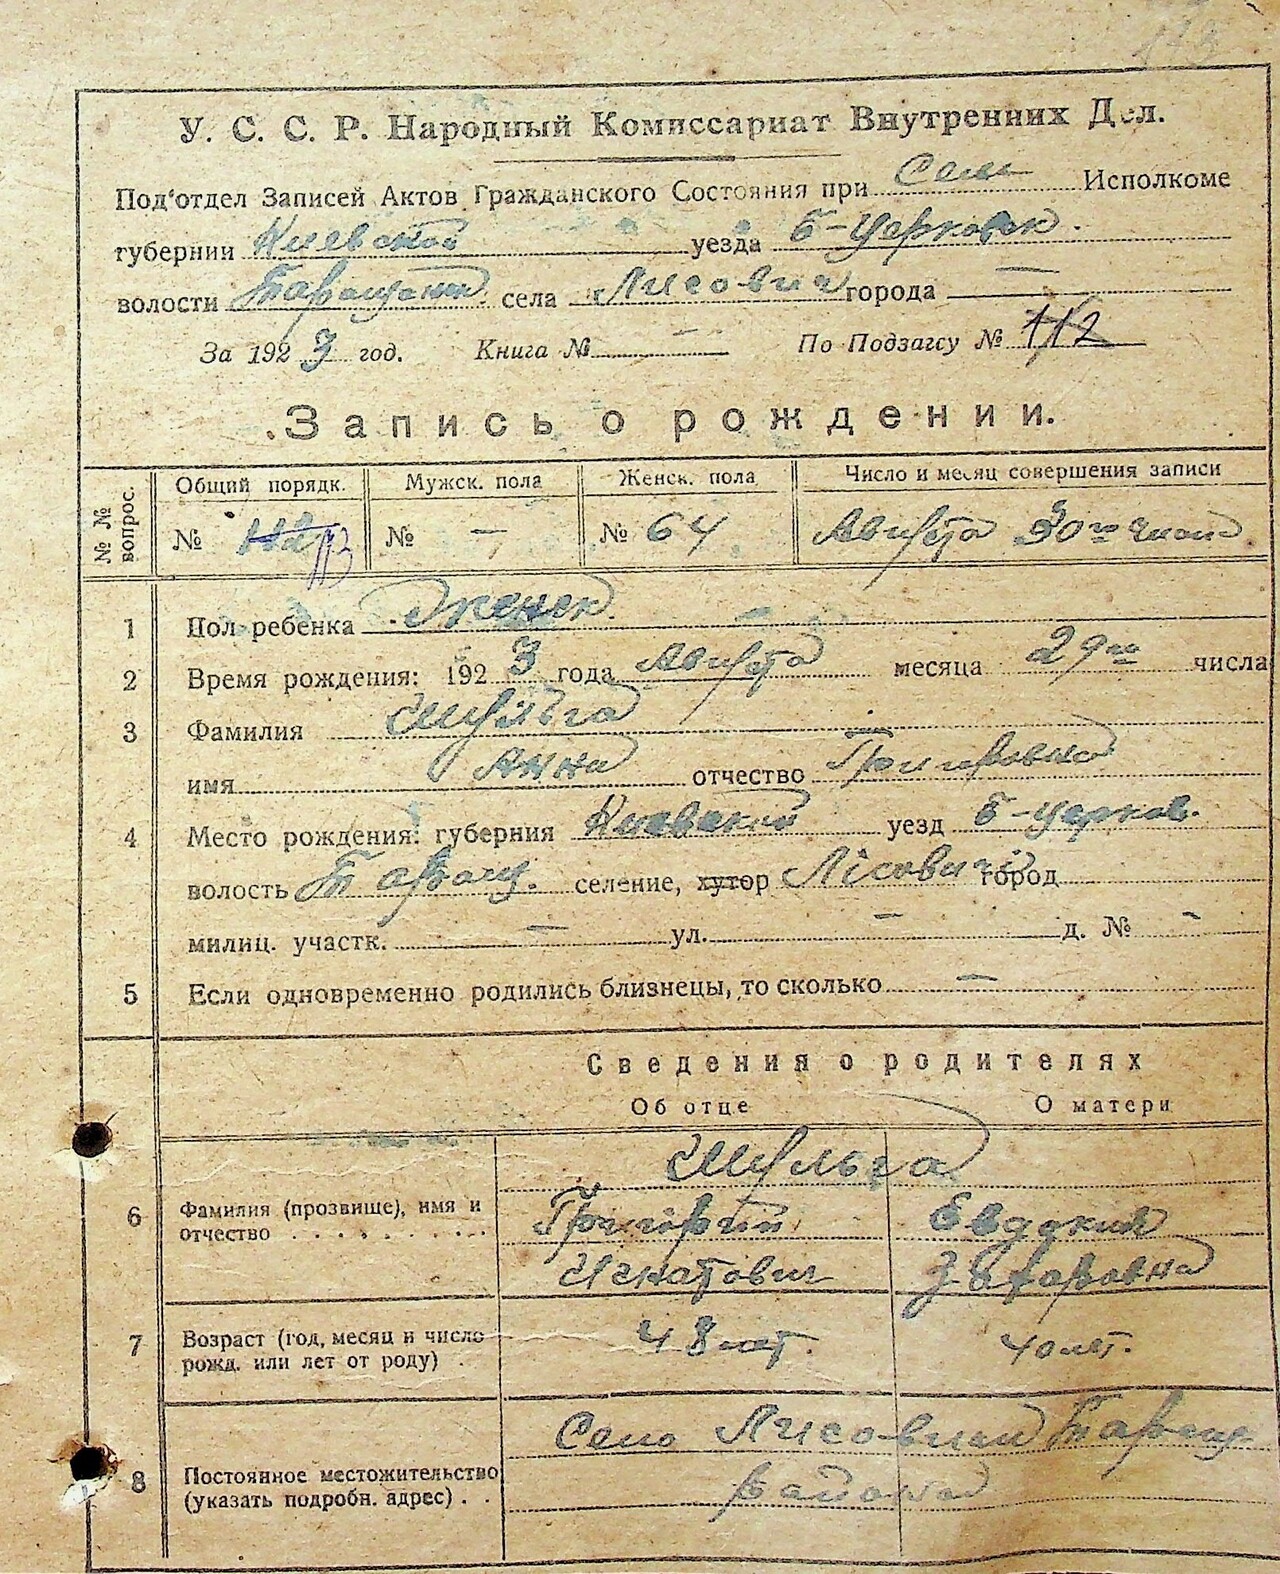 113
У. С. С. Р. Народный Комиссариат Внутренних Дел.
Под'отдел Записей Актов Гражданского Состояния при Сель Исполкоме
губернии Киевской уезда Б-Церковск.
волости Таращан. села Лисович города —
За 1923 год. Книга № — По Подзагсу № 112
Запись о рождении.
№ № вопрос.
Общий порядк. Мужск. пола Женск. пола Число и месяц совершения записи
№ 112 113 № — № 64 Августа 30го числа
1 Пол ребенка Женск.
2 Время рождения: 1923 года Августа месяца 29го числа
3 Фамилия Шульга
имя Анна отчество Григоровна
4 Место рождения: губерния Киевской уезд Б-Церков.
волость Таращ. селение, хутор Лісовичі город
милиц. участк. — ул. — д. № -
5 Если одновременно родились близнецы, то сколько —
Сведения о родителях
Об отце О матери
Шульга
6 Фамилия (прозвище), имя и отчество Григорий Евдокия
Игнатович Захаровна
7 Возраст (год, месяц и число рожд. или лет от роду) 48 лет. 40 лет.
Село Лисовичи Таращ
8 Постоянное местожительство (указать подробн. адрес) района